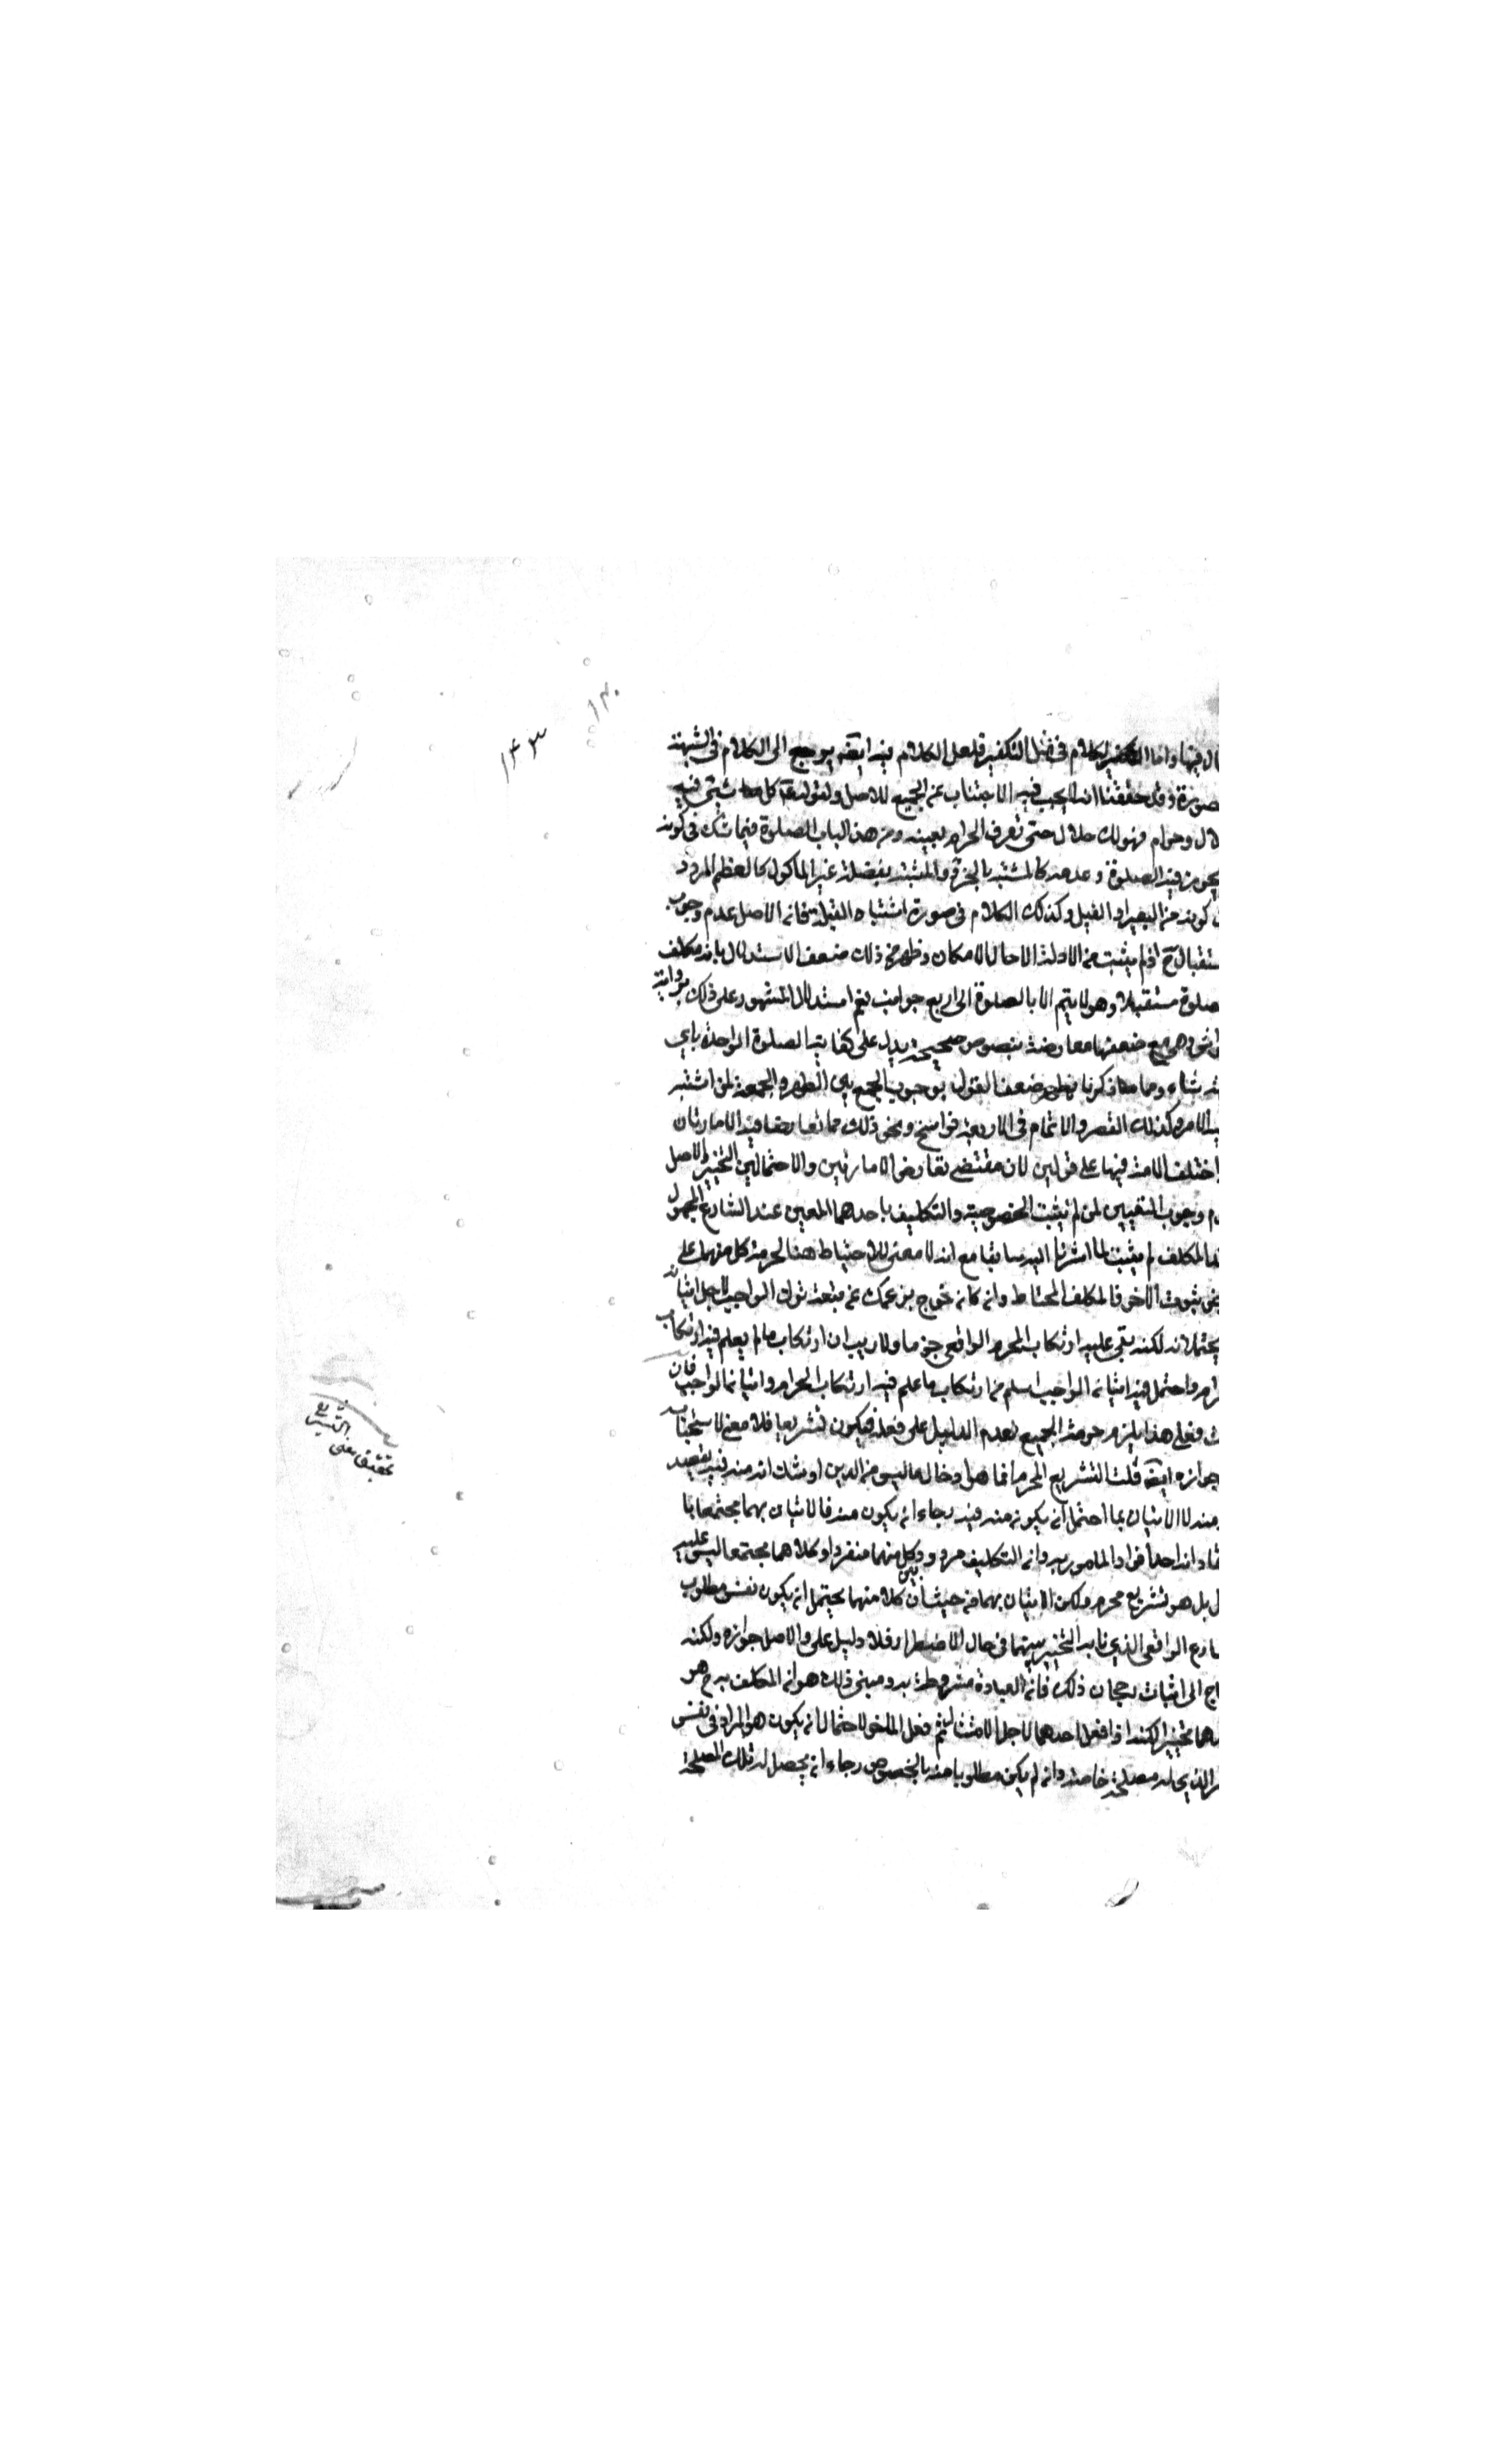 ١٣٠
١٤٣
فيها واما الكلام في مثل التكفير فلعل الكلام فيه ايضه يرجع الى الكلام في الشبهة
صورة وقد حققنا انه لا يجب فيه الاجتناب عن الجميع للاصل ولقوله كل شيئ فيه
لال وحرام فهو لك حلال حتى تعرف الحرام بعينه ومن هذا الباب الصلوة فيما شك في كونه
يجوز فيه الصلوة وعدمه كالمشتبه بالخز والمشتبه بفضلة غير الماكول كالعظم المردد
كونه من البعير او الفيل وكذلك الكلام في صورة اشتباه القبلة فانه الاصل عدم وجوب
ستقبال ح اذ لم يثبت من الادلة الا حال الامكان وظهر من ذلك ضعف الاستدلال بانه مكلف
صلوة مستقبلا وهو لا يتم الا بالصلوة الى اربع جوانب نعم استدلال المشهور على ذلك برواية
وهي مع ضعفها معارضة بنصوص صحيحة يدل على كفاية الصلوة الواحدة باي
شاء ومما ذكرنا يظهر ضعف القول بوجوب الجمع بين الظهر والجمعة لمن اشتبه
الامر وكذلك القصر والاتمام في الاربعة فراسخ ونحو ذلك مما تعارضا فيه الامارتان
اختلف الامة فيها على قولين لان مقتضى تعارض الامارتين والاحتمالين التخيير والاصل
م وجوب التعيين لمن لم يثبت الخصوصية والتكليف باحدهما المعين عند الشارع المجهول
المكلف لم يثبت لما اشرنا اليه سابقا مع انه لا معنى للاحتياط هنا لحرمة كل منهما على
ثبوت الاخر فالمكلف المحتاط وانه كانه خرج بزعمك عن تبعة ترك الواجب لاجل اتيانه
يحتملانه لكنه بقي عليه ارتكاب المحرم الواقعي جزما ولا ريب ان ارتكاب ما لم يعلم فيه ارتكاب
رام واحتمل فيه اتيانه الواجب اسلم من ارتكاب ما علم فيه ارتكاب الحرام واتيانه الواجب فان
ت فعلى هذا يلزم حرمة الجميع لعدم الدليل على فعله فيكون تشريعا فلا معنى لاستحباب
جوازه ايضه قلت التشريع المحرم انما هو ادخال ما ليس من الدين او شك انه منه فيه بقصد
منه لا الاتيان بما احتمل انه يكونه منه فيه رجاء انه يكون منه فالاتيان بهما مجتمعا با
انه احد افراد المامور به وانه التكليف مردد بين كل منهما منفردا وكلاهما مجتمعا ليس عليه
ل بل هو تشريع محرم ولكن الاتيان بهما من حيث ان كلا منهما يحتمل انه يكون نفس مطلوب
شارع الواقعي الذي نابه التخيير بينهما في حال الاضطرار فلا دليل على والاصل جوازه ولكنه
اج الى اثبات رجحان ذلك فانه العبادة مشروطة به ومبنى ذلك هو انه المكلف به ح هو
هما تخييرا لكنه اذا فعل احدهما لاجل الامتثال ثم فعل الاخر لاحتمال انه يكون هو المراد في نفس
ر الذي له مصلحة خاصة وانه لم يكن مطلوبا منه بالخصوص رجاء انه يحصل له تلك المصلحة
تحقيق معنى
التشريع